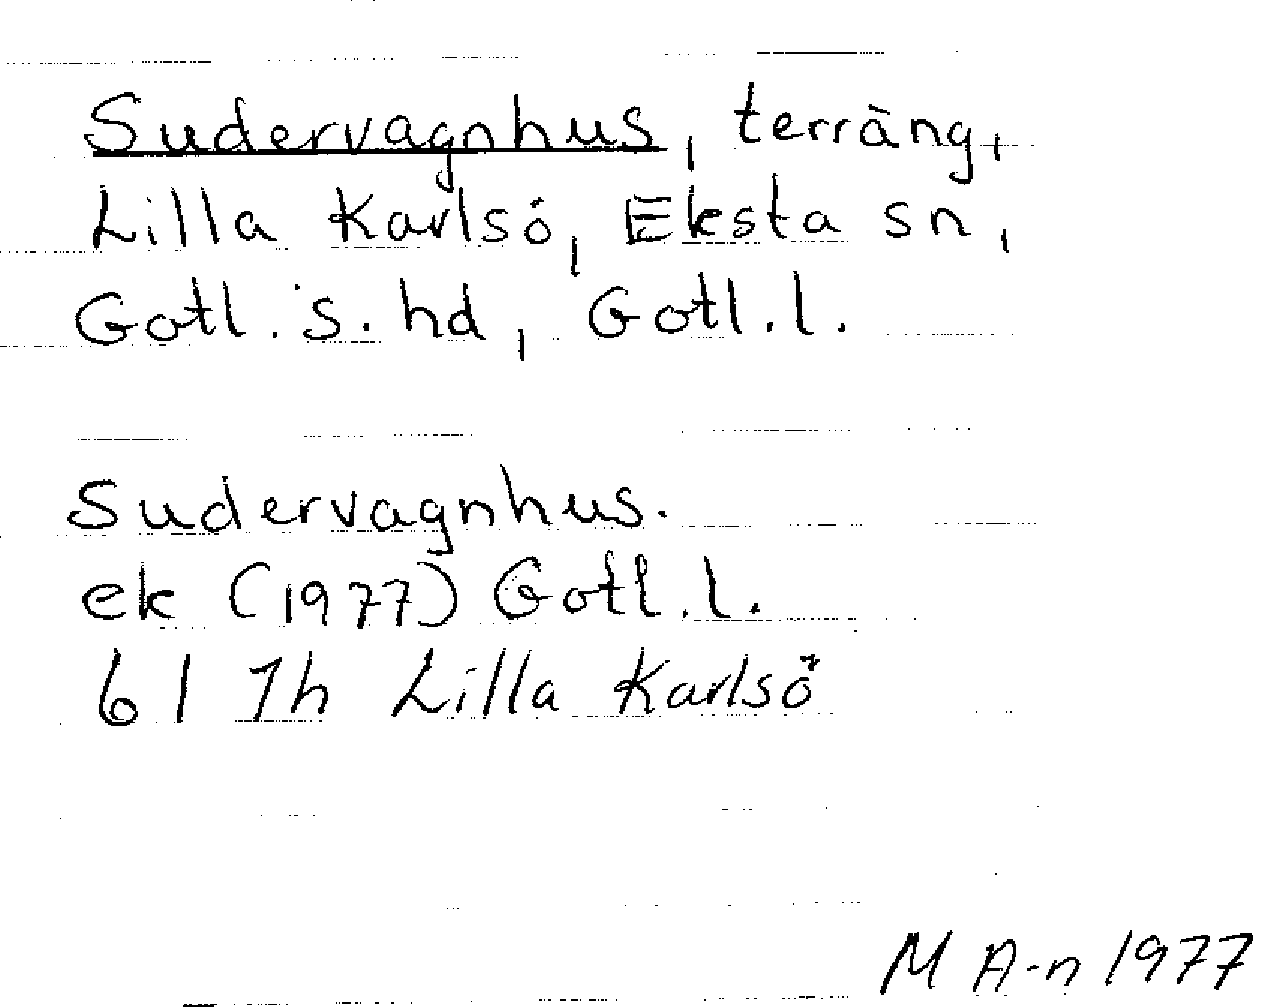 Sudervagnhus, terräng,
Lilla Karlsö, Eksta sn,
Gotl. s. hd, Gotl. l.
Sudervagnhus.
ek (1977) Gotl. l.
6 I 7h Lilla Karlsö
M A-n 1977